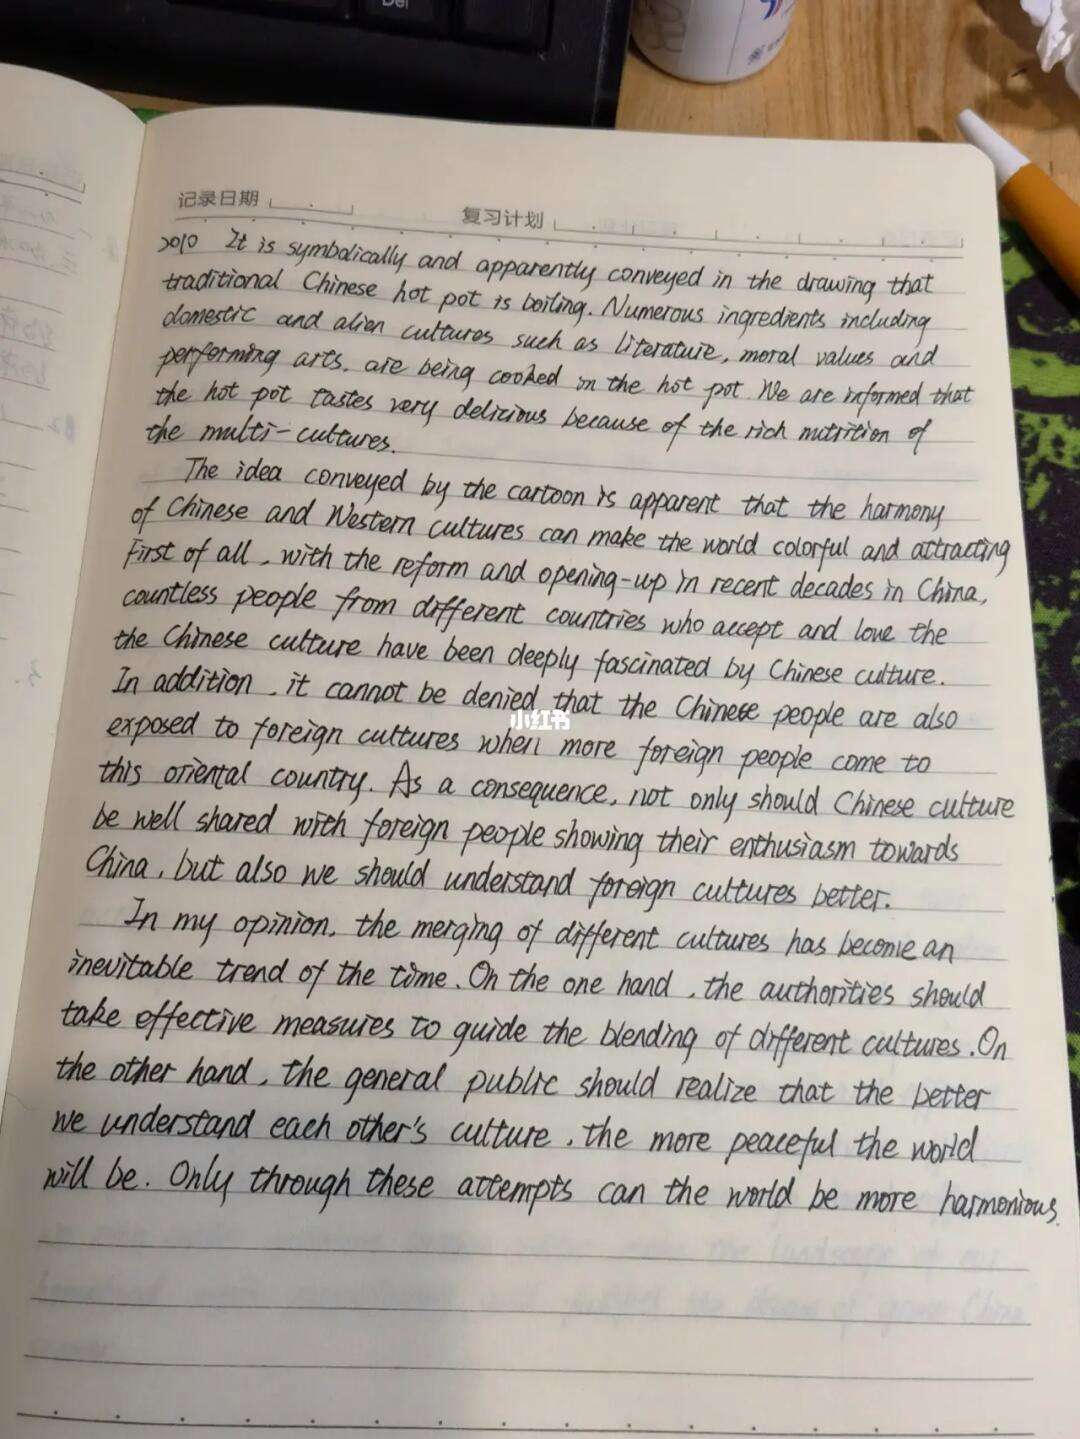 Del
记录日期
复习计划
2010 It is symbolically and apparently conveyed in the drawing that
traditional Chinese hot pot is boiling. Numerous ingredients including
domestic and alien cultures such as literature, moral values and
performing arts, are being cooked in the hot pot. We are informed that
the hot pot tastes very delicious because of the rich nutrition of
the multi-cultures.
The idea conveyed by the cartoon is apparent that the harmony
of Chinese and Western cultures can make the world colorful and attracting
First of all, with the reform and opening-up in recent decades in China,
countless people from different countries who accept and love the
the Chinese culture have been deeply fascinated by Chinese culture.
In addition, it cannot be denied that the Chinese people are also
小红书
exposed to foreign cultures when more foreign people come to
this oriental country. As a consequence, not only should Chinese culture
be well shared with foreign people showing their enthusiasm towards
China, but also we should understand foreign cultures better.
In my opinion, the merging of different cultures has become an
inevitable trend of the time. On the one hand, the authorities should
take effective measures to guide the blending of different cultures. On
the other hand, the general public should realize that the better
we understand each other's culture, the more peaceful the world
will be. Only through these attempts can the world be more harmonious.